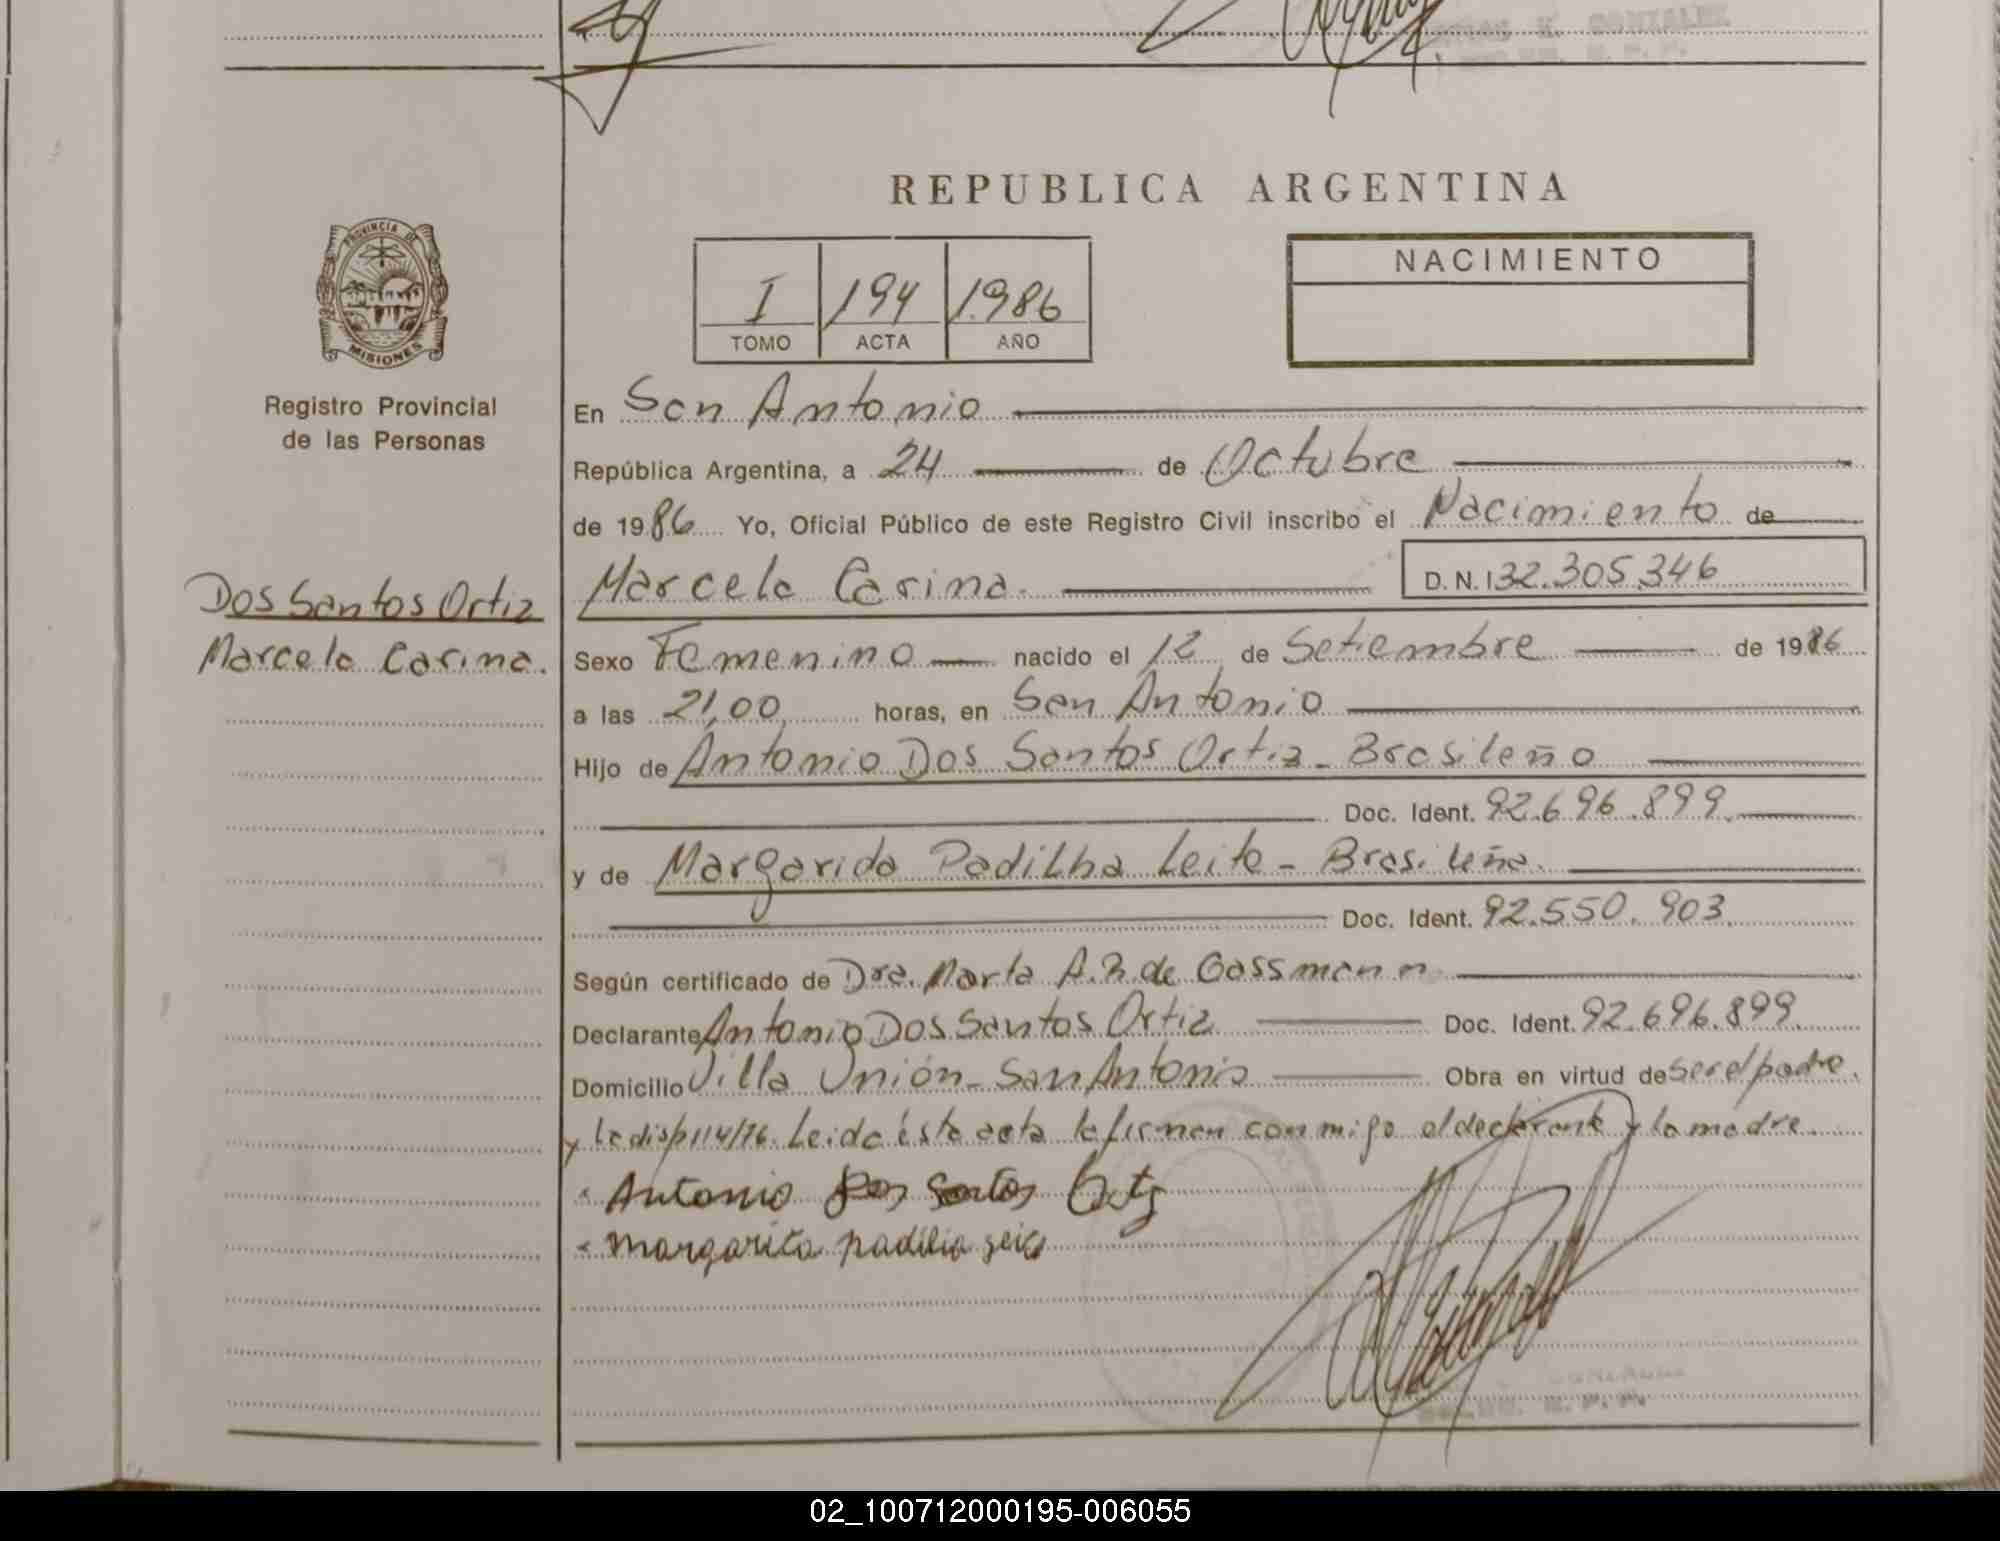 REPUBLICA ARGENTINA
PROVINCIA DE
MISIONES
Registro Provincial
de las Personas
I 194 1986
TOMO ACTA AÑO
NACIMIENTO
En San Antonio
República Argentina, a 24 de Octubre
de 1986 Yo, Oficial Público de este Registro Civil inscribo el Nacimiento de
Marcela Carina. D.N.I 32.305.346
Dos Santos Ortiz
Marcela Carina.
Sexo Femenino nacido el 12 de Setiembre de 1986
a las 21,00 horas, en San Antonio
Hijo de Antonio Dos Santos Ortiz - Brasileño
Doc. Ident. 92.696.899.
y de Margarida Padilha Leite - Brasileña.
Doc. Ident. 92.550.903
Según certificado de Dra. Marta A. R. de Gassmann
Declarante Antonio Dos Santos Ortiz Doc. Ident. 92.696.899.
Domicilio Villa Unión - San Antonio Obra en virtud de ser el padre.
y la disp 114/76. Leida ésta acta la firman conmigo el declarante y la madre.
Antonio dos santos Ortz
margarita padilia
02_100712000195-006055